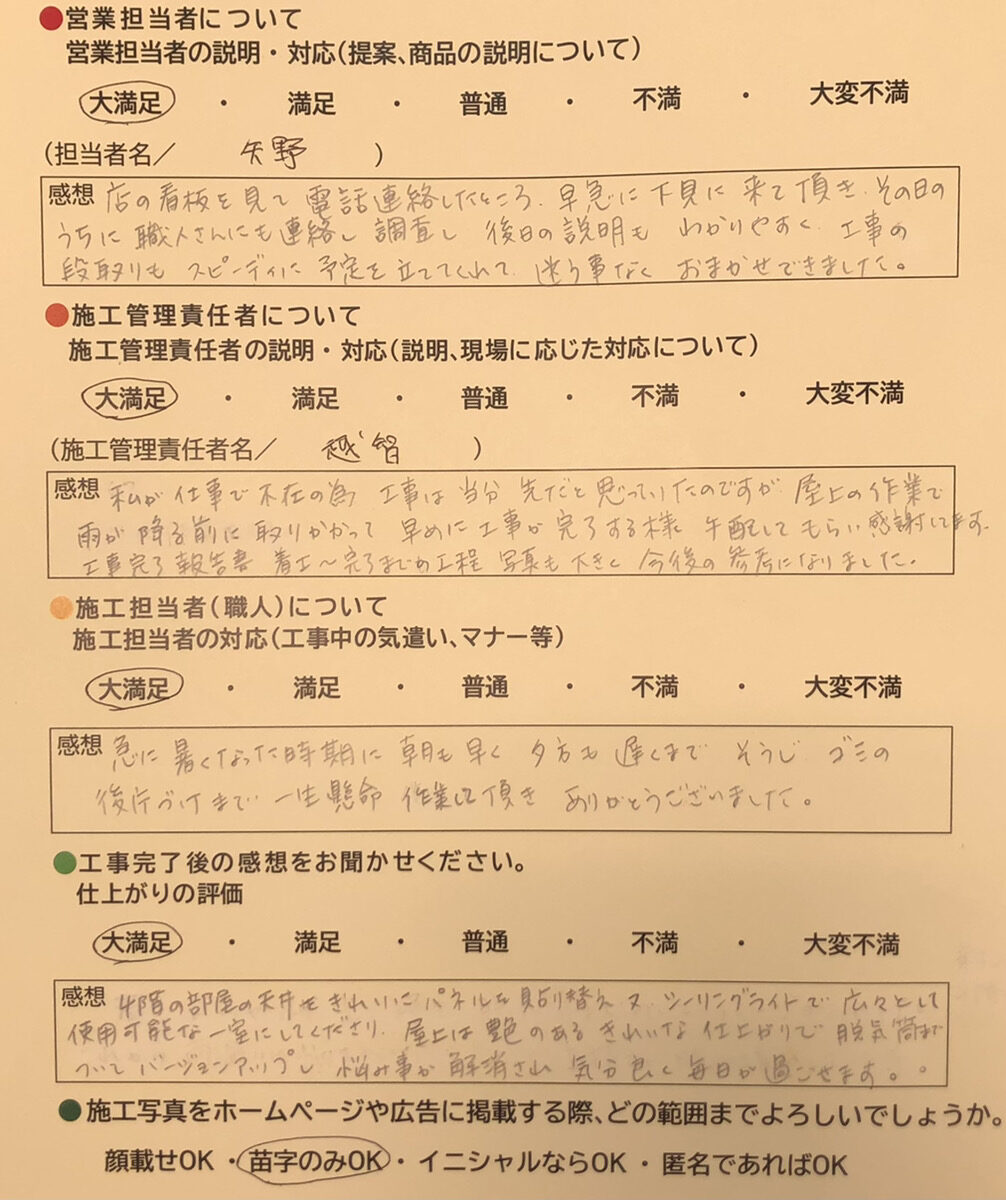 ●営業担当者について
営業担当者の説明・対応(提案、商品の説明について)
大満足 ・ 満足 ・ 普通 ・ 不満 ・ 大変不満
(担当者名/ 矢野 )
感想 店の看板を見て 電話連絡したところ、早急に下見に来て頂き、その日の
うちに職人さんにも連絡し 調査し 後日の説明も わかりやすく、工事の
段取りも スピーディに 予定を立ててくれて、迷う事なく おまかせできました。
●施工管理責任者について
施工管理責任者の説明・対応(説明、現場に応じた対応について)
大満足 ・ 満足 ・ 普通 ・ 不満 ・ 大変不満
(施工管理責任者名/ 越智 )
感想 私が仕事で不在の為 工事は当分 先だと思っていたのですが、屋上の作業で
雨が降る前に取りかかって 早めに工事が完了する様 手配してもらい感謝してます。
工事完了報告書 着工~完了までの工程 写真も大きく 今後の参考になりました。
●施工担当者(職人)について
施工担当者の対応(工事中の気遣い、マナー等)
大満足 ・ 満足 ・ 普通 ・ 不満 ・ 大変不満
感想 急に暑くなった時期に 朝も早く 夕方も遅くまで そうじ ゴミの
後片づけまで 一生懸命 作業して頂き ありがとうございました。
●工事完了後の感想をお聞かせください。
仕上がりの評価
大満足 ・ 満足 ・ 普通 ・ 不満 ・ 大変不満
感想 4階の部屋の天井をきれいにパネルを貼り替え 又、シーリングライトで 広々として
使用可能な一室にしてくださり、屋上は艶のあるきれいな仕上がりで 脱気筒まで
ついてバージョンアップし 悩み事が解消され 気分良く毎日が過ごせます。
●施工写真をホームページや広告に掲載する際、どの範囲までよろしいでしょうか。
顔載せOK ・ 苗字のみOK ・ イニシャルならOK ・ 匿名であればOK